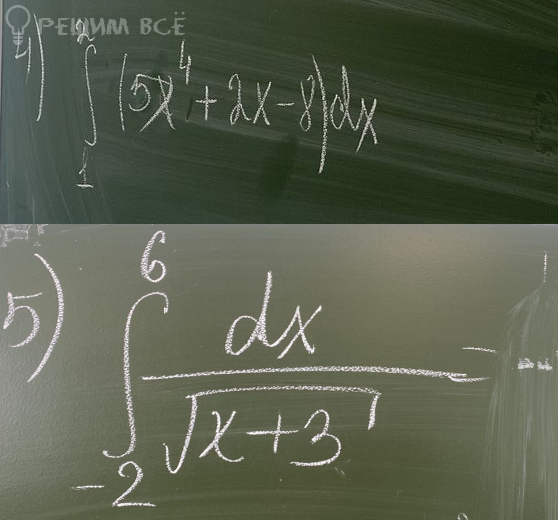 РЕШИМ ВСЁ
4) ∫₁² (5x⁴ + 2x - 8)dx
5) ∫₋₂⁶ dx / √(x+3) =